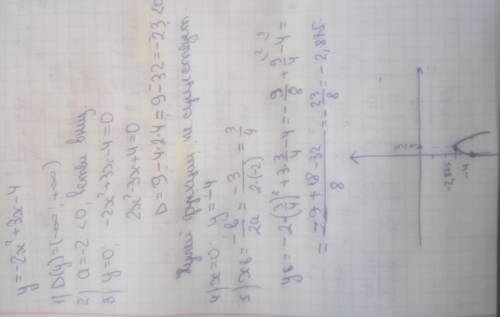 y=-2x²+3x-4
1) D(y)=(-∞; +∞)
2) a=-2<0, ветви вниз
3) y=0, -2x²+3x-4=0
2x²-3x+4=0
D=9-4·2·4=9-32=-23<0
Нулей функции не существует.
4) x=0 y=-4
5) x_в=-b/2a=-3/2·(-2)=3/4
y_в=-2·(3/4)²+3·3/4-4=-9/8+9/4-4=
=-9+18-32/8=-23/8=-2,875
3/4
-2,875
-4